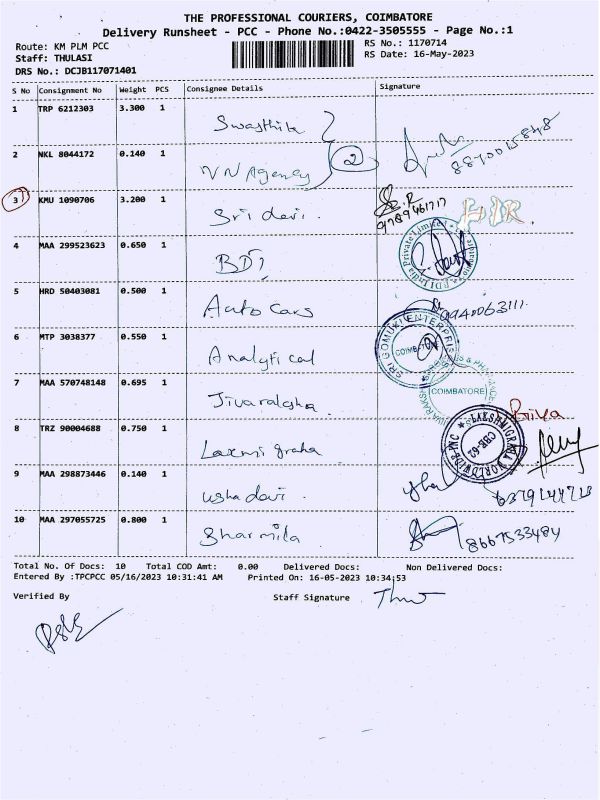 THE PROFESSIONAL COURIERS, COIMBATORE
Delivery Runsheet - PCC - Phone No.:0422-3505555 - Page No.:1
Route: KM PLM PCC RS No.: 1170714
Staff: THULASI RS Date: 16-May-2023
DRS No.: DCJB117071401
S No Consignment No Weight PCS Consignee Details Signature
1 TRP 6212303 3.300 1 Swasthik
2 NKL 8044172 0.140 1 VN Agency 2
3 KMU 1090706 3.200 1 Sri devi. 9789461717 HIR
4 MAA 299523623 0.650 1 BDI
5 HRD 50403081 0.500 1 Auto Cars 9940063111
6 MTP 3038377 0.550 1 Analytical SRI GOMUKI ENTERPRISES COIMBATORE
7 MAA 570748148 0.695 1 Jivaraksha COIMBATORE Priya
8 TRZ 90004688 0.750 1 Laxmi graha LAKSHMIGRAHA WORLDWIDE INC CBE-62
9 MAA 298873446 0.140 1 usha devi. usha
10 MAA 297055725 0.800 1 Sharmila 8667533484
Total No. Of Docs: 10 Total COD Amt: 0.00 Delivered Docs: Non Delivered Docs:
Entered By :TPCPCC 05/16/2023 10:31:41 AM Printed On: 16-05-2023 10:34:53
Verified By Staff Signature